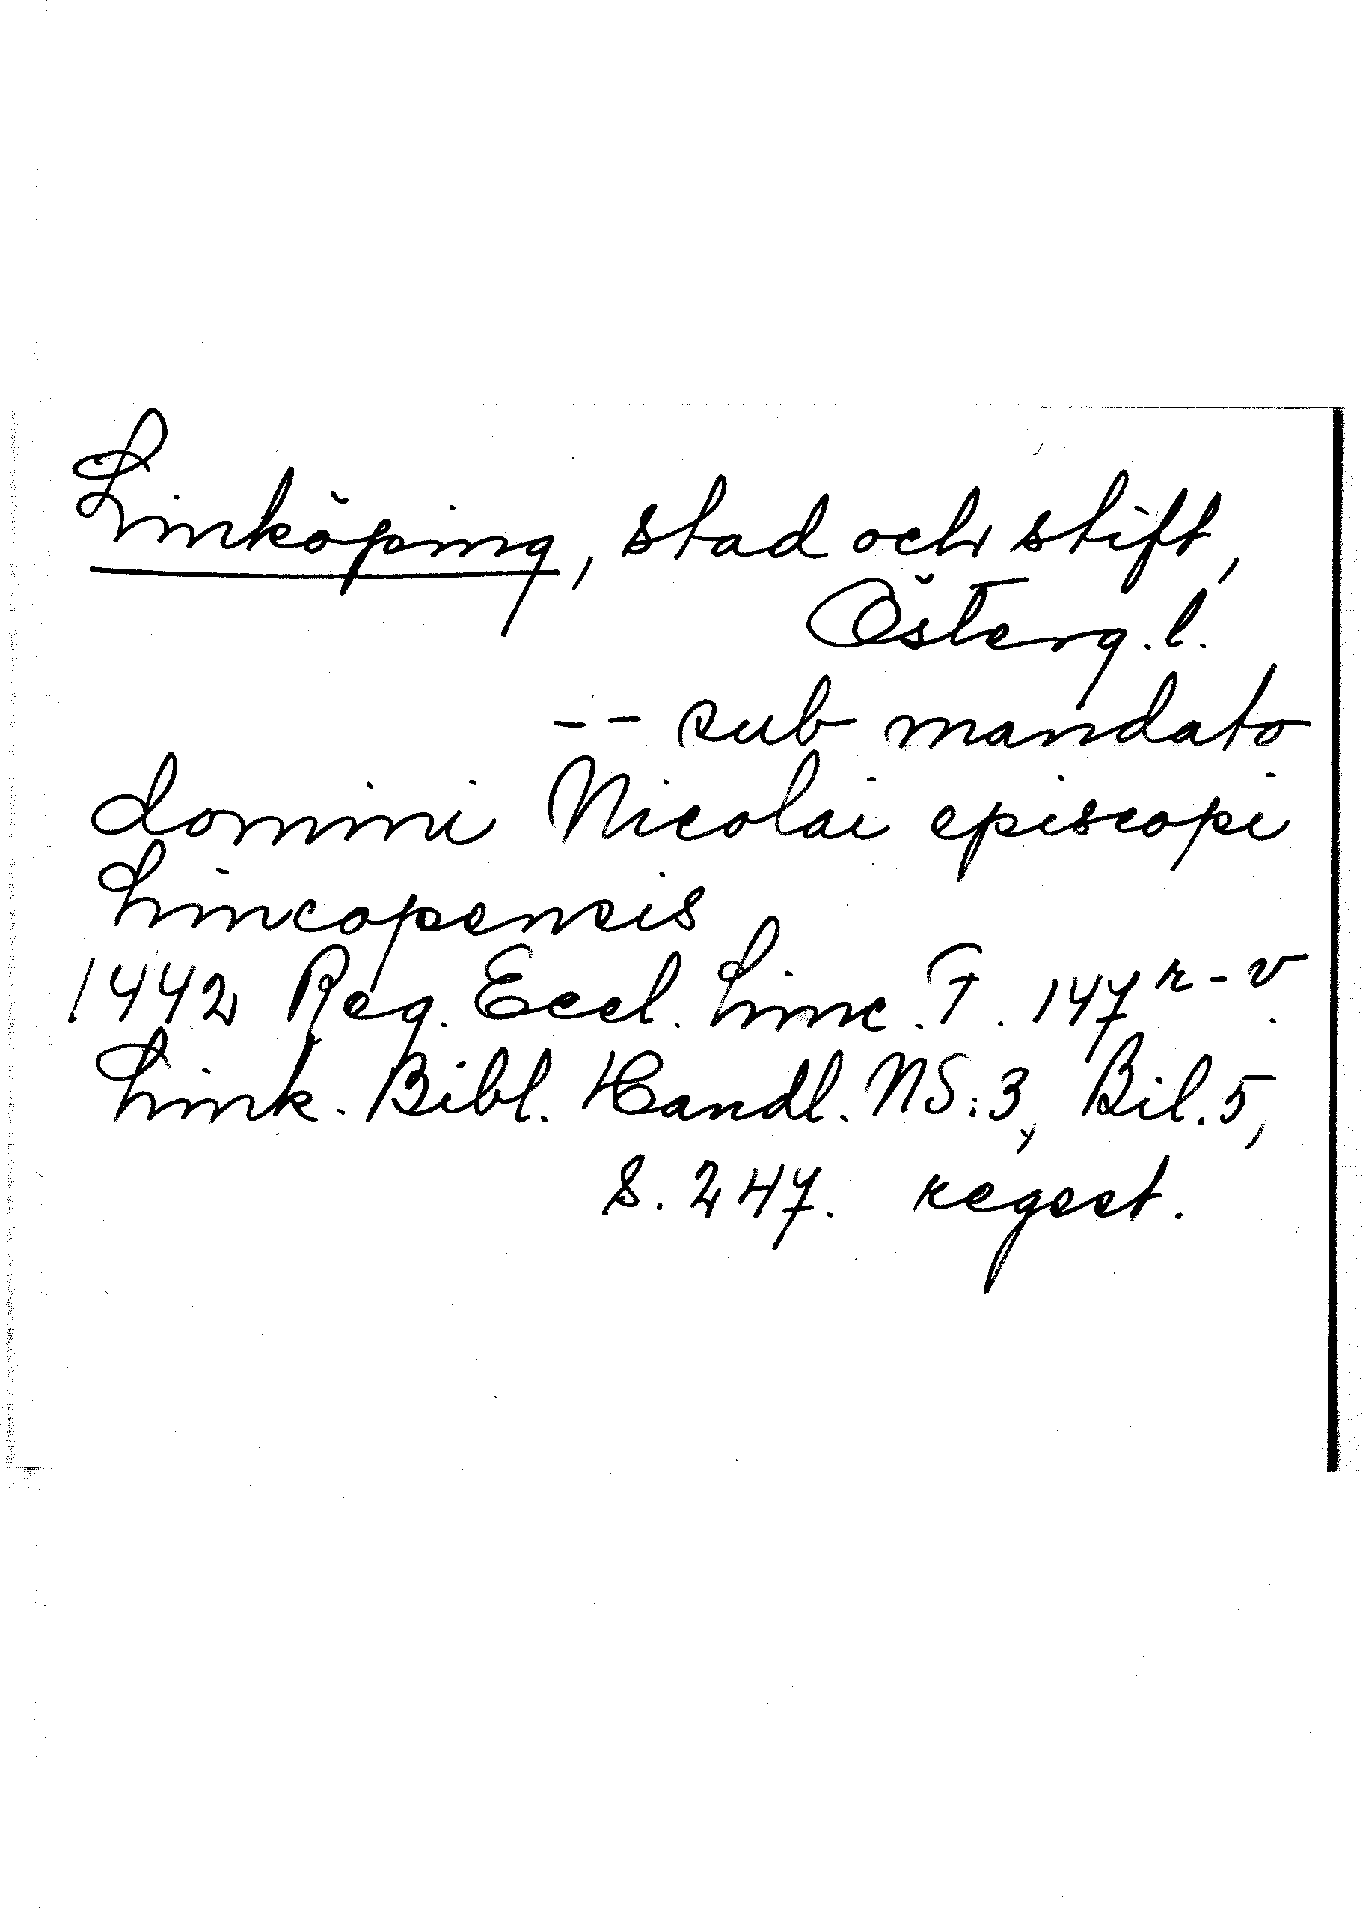 Linköping, stad och stift,
Österg.l.
-- sub mandato
domini Nicolai episcopi
Lincopensis
1442 Reg. Eccl. Linc. F. 147 r-v.
Link. Bibl. Handl. NS:3, Bil. 5,
S. 247. regest.